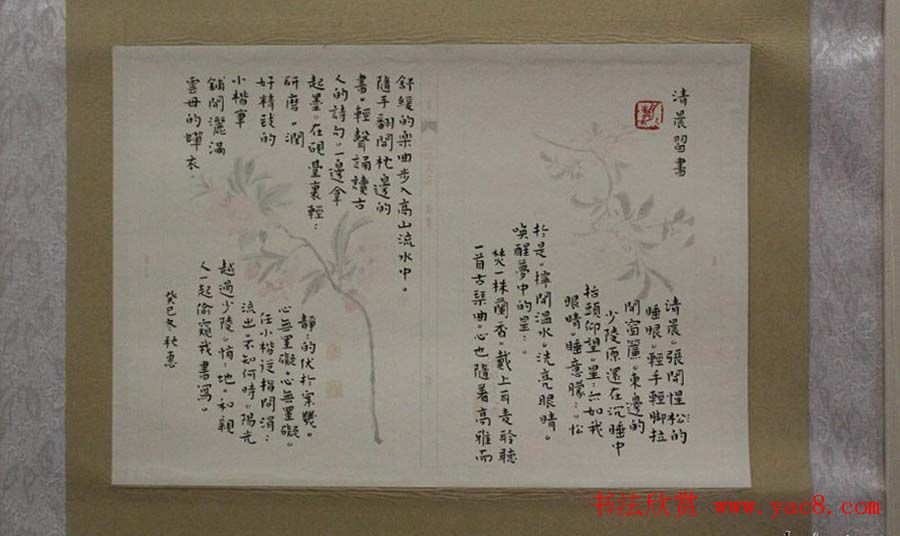 清晨習書
清晨。張開惺忪的
睡眼。輕手輕脚拉
開窗簾。東邊的
少陵原還在沉睡中
抬頭仰望。星:亦如我
眼睛。睡意朦:。忪
於是。擰開溫水。洗亮眼睛。
喚醒夢中的星:。
焚一株蘭香。戴上耳麦聆聽
一首古琹曲。心也隨着高雅而
舒緩的樂曲步入高山流水中。
隨手翻開枕邊的
書。輕聲誦讀古
人的詩句。一邊拿
起墨。在硯臺裏輕:
研磨。潤
好精致的
小楷筆
鋪開灑滿
雲母的蟬衣
靜:的伏於案幾。
心無罣礙。心無罣礙。
任小楷從指間涓:
流出。不知何時。陽光
越過少陵。悄:地。和親
人一起偷窺我書寫。
癸巳冬秋惠
书法欣赏 www.yac8.com